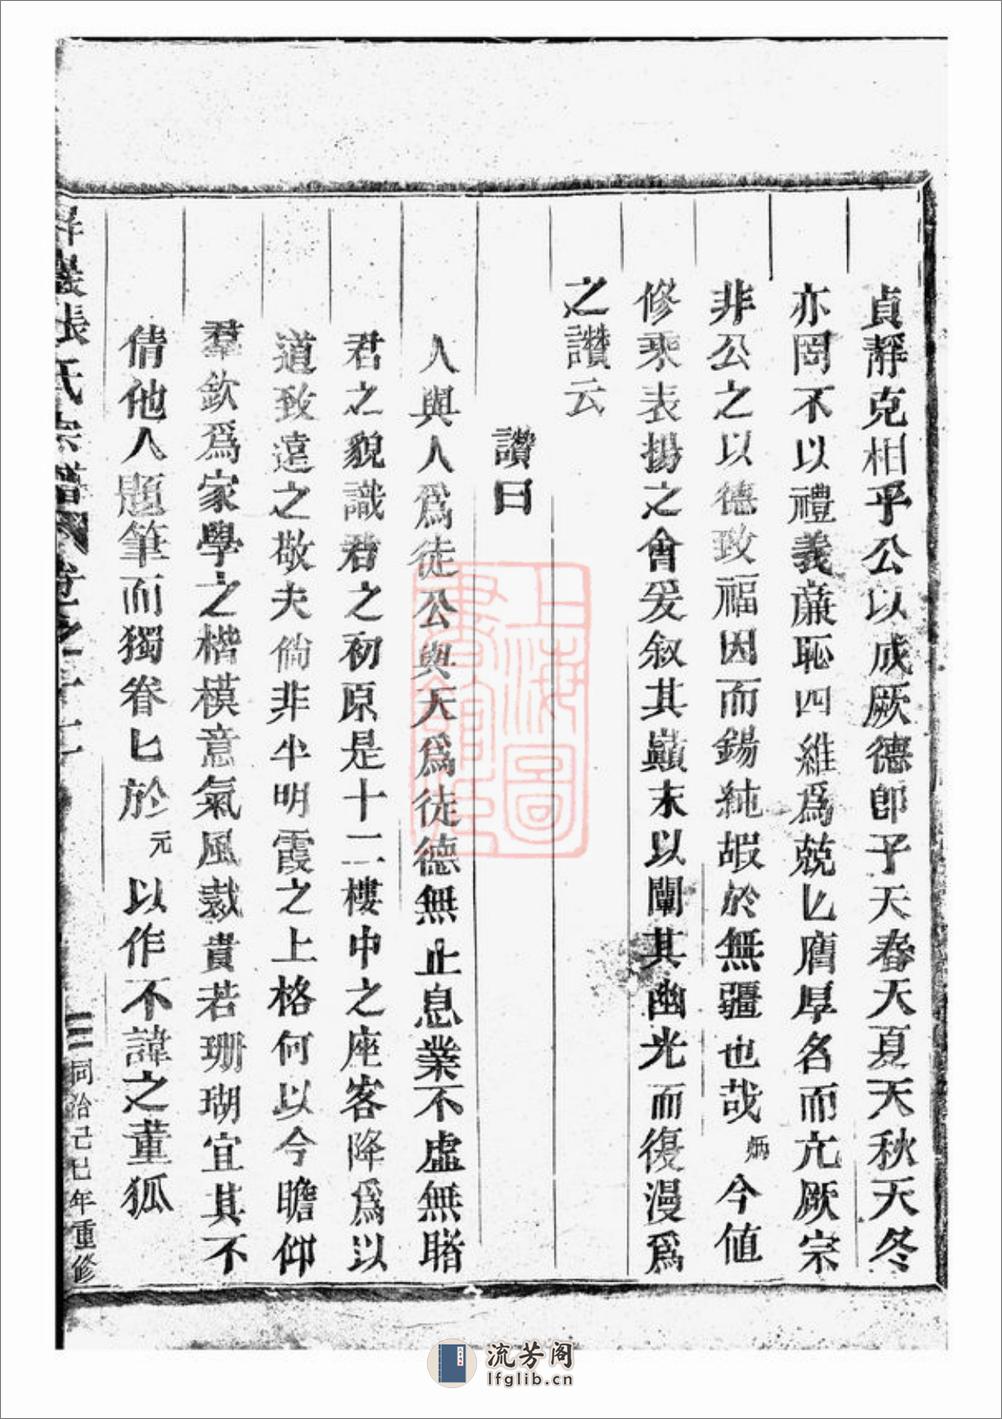 貞靜克相乎公以成厥德卽子天春天夏天秋天冬
亦罔不以禮義廉恥四維爲兢匕膺厚名而亢厥宗
非公之以德致福因而錫純嘏於無疆也哉炳今值
修乘表揚之會爰叙其巔末以闡其幽光而復漫爲
之讚云
讚曰
人與人爲徒公與天爲徒德無止息業不虛無賭
君之貌識君之初原是十二樓中之座客降爲以
道致遠之敬夫倘非半明霞之上格何以今瞻仰
羣欽爲家學之楷模意氣風裁貴若珊瑚宜其不
倩他人題筆而獨眷匕於元以作不諱之董狐
張氏宗譜 卷之十二
三 同治己巳年重修
上海圖書館藏
流芳阁
lfglib.cn